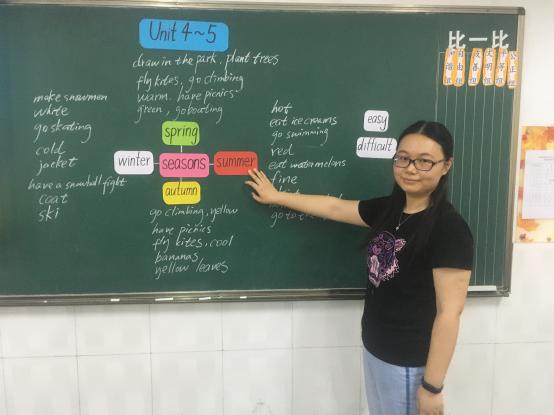 Unit 4~5
draw in the park, plant trees
fly kites, go climbing
warm, have picnics
green, go boating
make snowmen
white
go skating
cold
jacket
have a snowball fight
coat
ski
spring
winter
seasons
summer
autumn
go climbing, yellow
have picnics
fly kites, cool
bananas
yellow leaves
hot
eat ice creams
go swimming
red
eat watermelons
fine
go to the
easy
difficult
比一比